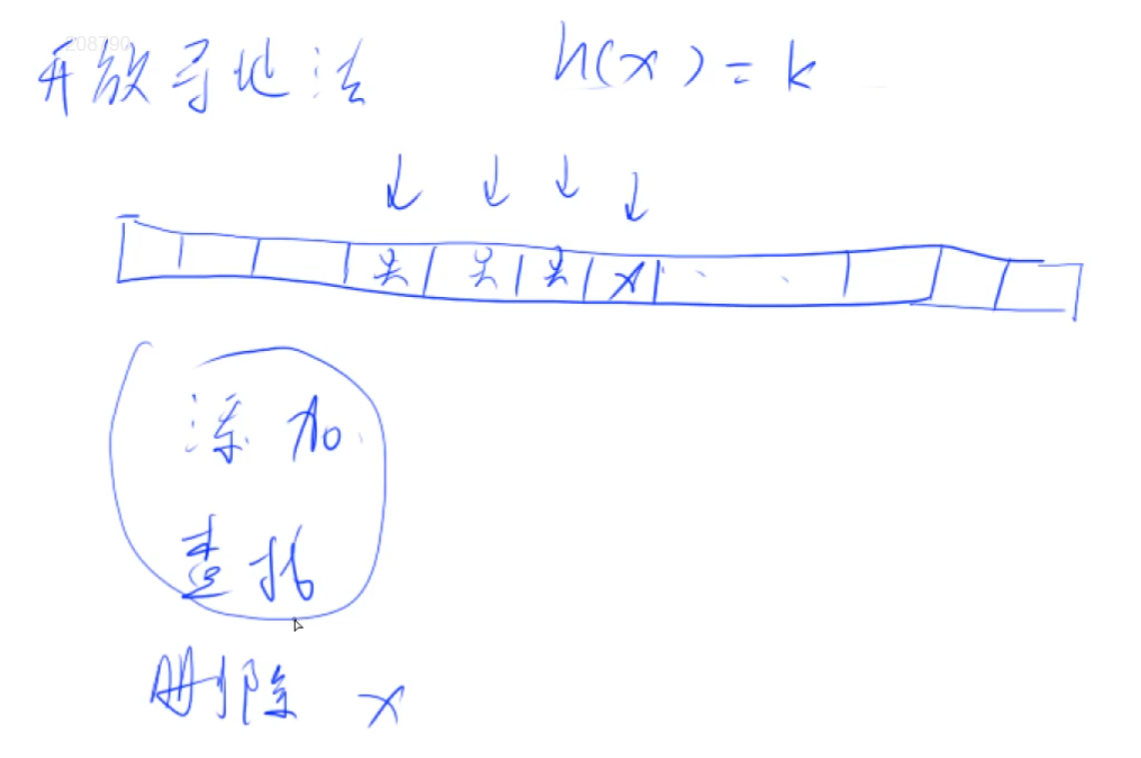 208790
开放寻址法 h(x) = k
关 关 关 x
添加
查找
删除 x